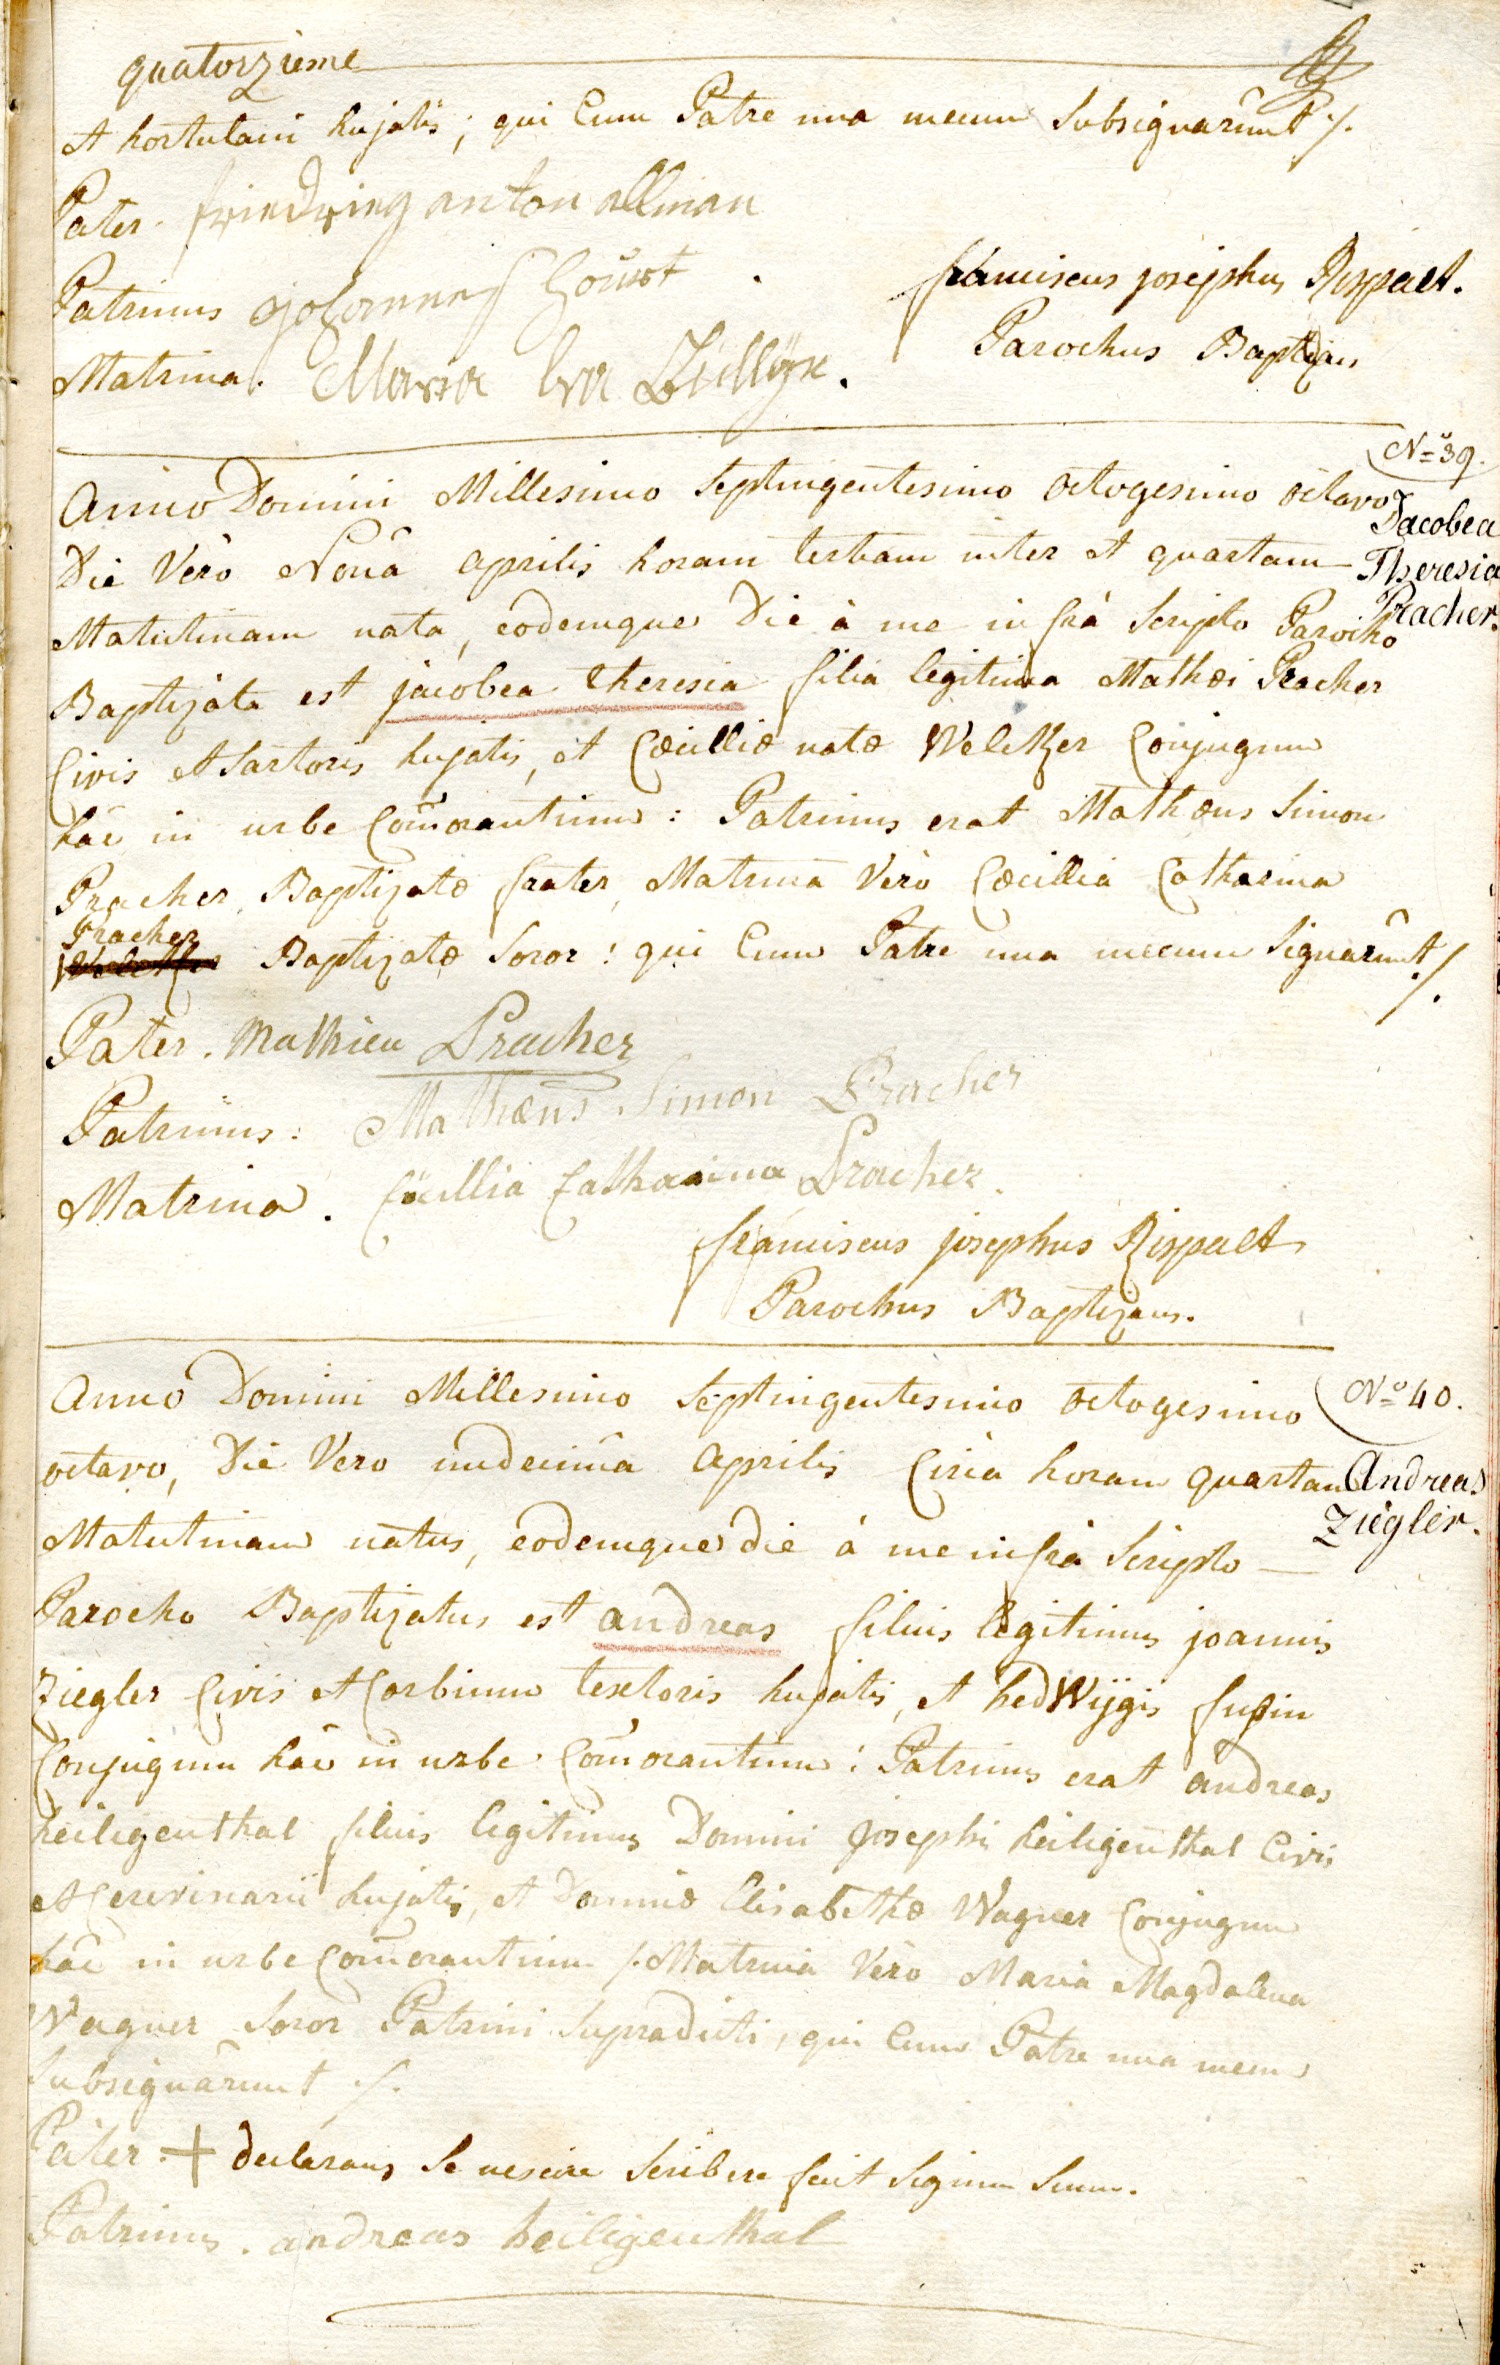 quatorzieme
et hortulani hujatis; qui Cum Patre una mecum subsignarunt ./.
Pater. friedrig anton allman
Patrinus Johannes
franciscus josephus Rispalt.
Matrina. Maria Eva
Parochus Baptizans
N=o 39.
Anno Domini Millesimo septingentesimo octogesimo octavo
Jacobea
Die Verò Nonâ aprilis horam tertiam inter et quartam
Theresia
Matutinam nata, eodemque Die à me infrà scripto Parocho
Pracher.
Baptizata est jacobea theresia filia legitima Mathæi Pracher
Civis et sartoris hujatis, et Cæcilliæ natæ Welcker Conjugum
hâc in urbe Com̃orantium: Patrinus erat Mathæus Simon
Pracher, Baptizatæ frater, Matrina Verò Cæcillia Catharina
Pracher
Baptizatæ soror: qui Cum Patre una mecum signarûnt ./.
Pater. Mathieu Pracher
Patrinus: Mathæus Simon Pracher
Matrina. Cäcillia Catharina Pracher.
franciscus josephus Rispalt
Parochus Baptizans.
N=o 40.
Anno Domini Millesimo septingentesimo octogesimo
octavo, Die Vero undecimâ aprilis Circà horam quartam
Andreas
Matutinam natus, eodemque die à me infrà scripto
Ziegler.
Parocho Baptizatus est andreas filius legitimus joannis
Ziegler Civis et Corbium textoris hujatis, et hedWijgis
Conjugum hâc in urbe Com̃orantium: Patrinus erat andreas
heiligenthal filius legitimus Domini josephi heiligenthal Civis
et Cerevisiarii hujatis, et Dominæ Elisabethæ Wagner Conjugum
hâc in urbe Com̃orantium /. Matrina Vèrò Maria Magdalena
Wagner soror Patrini supradicti, qui Cum Patre una mecum
subsignârunt ./.
Pater. + declarans se nescire scribere fecit signum suum.
Patrinus. andreas heiligenthal